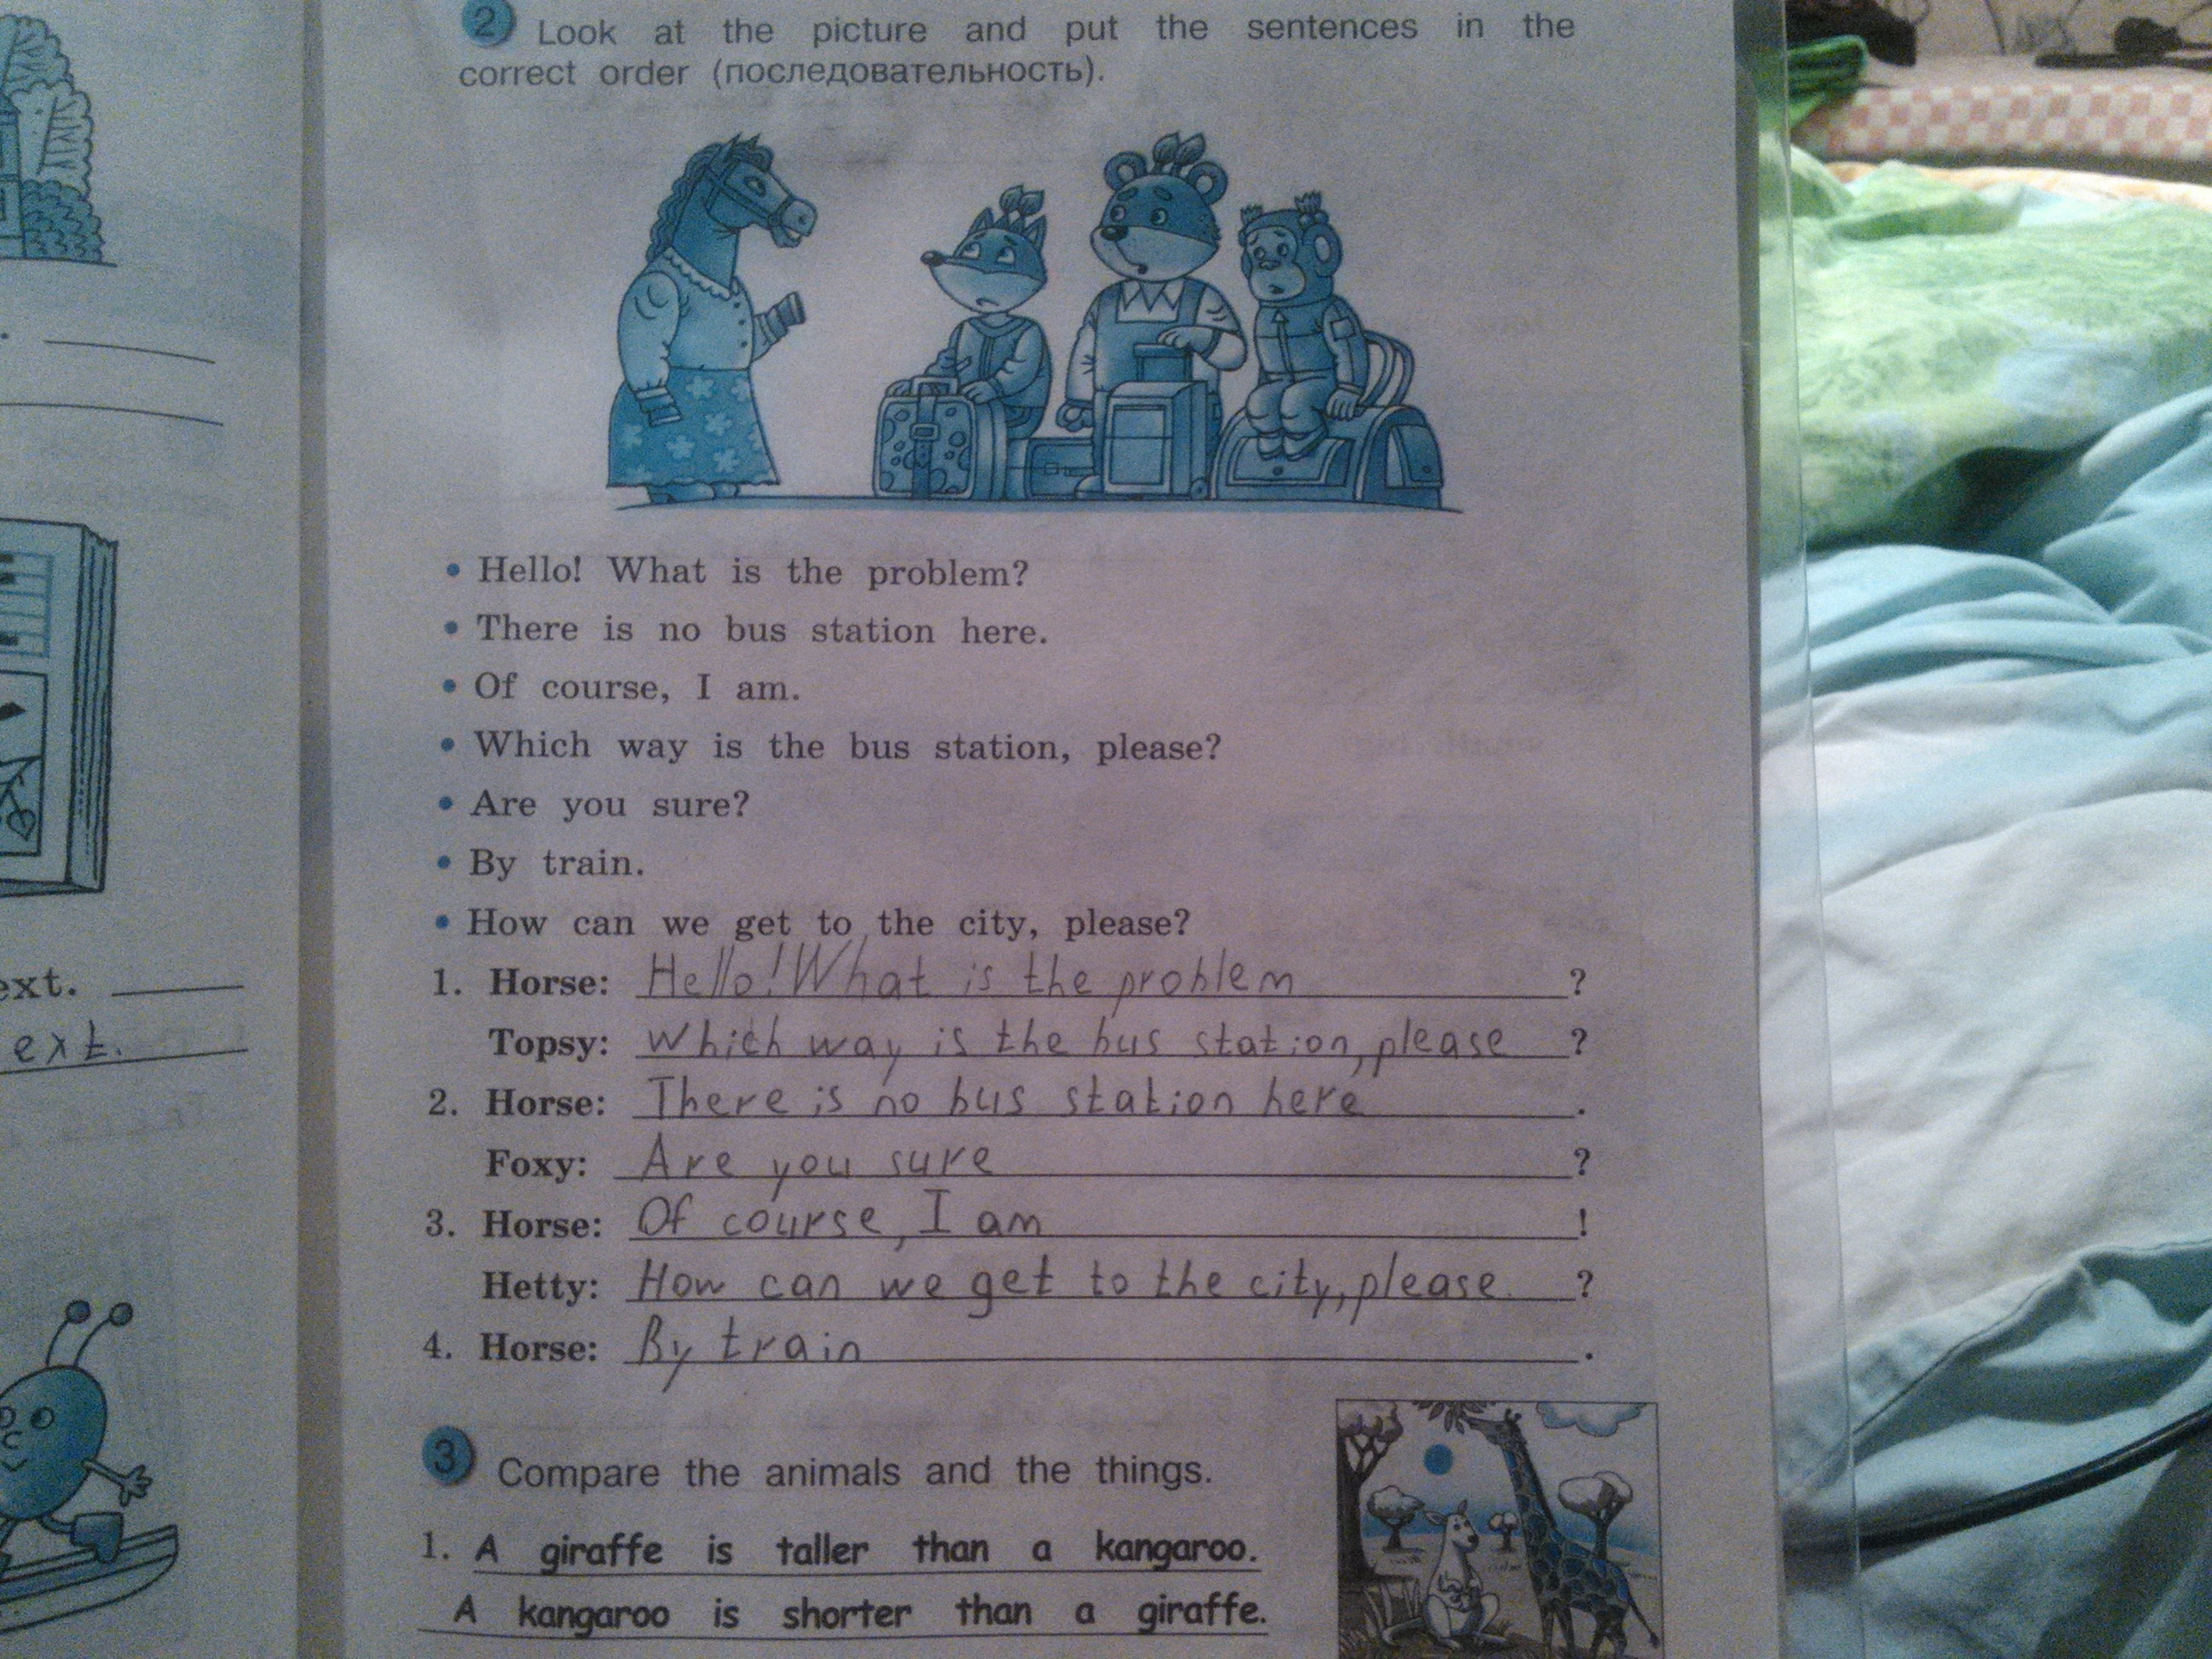 2 Look at the picture and put the sentences in the
correct order (последовательность).
• Hello! What is the problem?
• There is no bus station here.
• Of course, I am.
• Which way is the bus station, please?
• Are you sure?
• By train.
• How can we get to the city, please?
1. Horse: Hello! What is the problem ?
Topsy: Which way is the bus station, please ?
2. Horse: There is no bus station here .
Foxy: Are you sure ?
3. Horse: Of course, I am !
Hetty: How can we get to the city, please ?
4. Horse: By train .
3 Compare the animals and the things.
1. A giraffe is taller than a kangaroo.
A kangaroo is shorter than a giraffe.
ext.
ext.